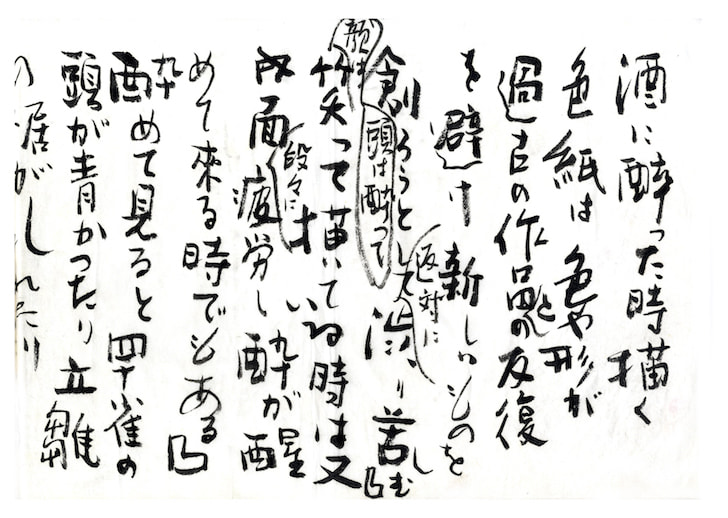 酒に酔った時描く
色紙は色や形が
過去の作品との反復
を避け新しいものを
返対に
創ろうとして渋り苦しむ
頭は酔って
顔は
笑って描いている時は又
段々に
反面疲労し酔が醒
めて來る時でもある
酔醒めて見ると四十雀の
頭が青かったり立雛